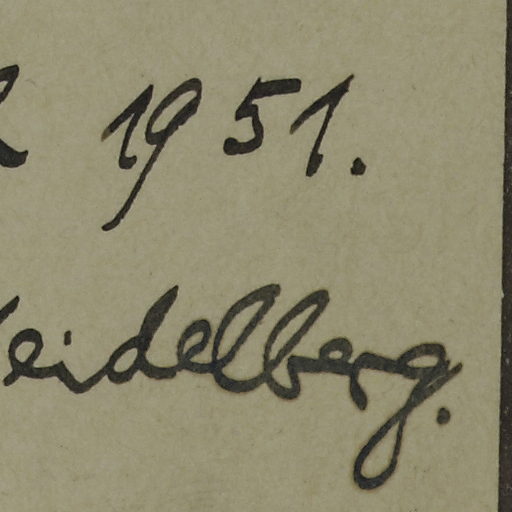 1951.
Heidelberg.